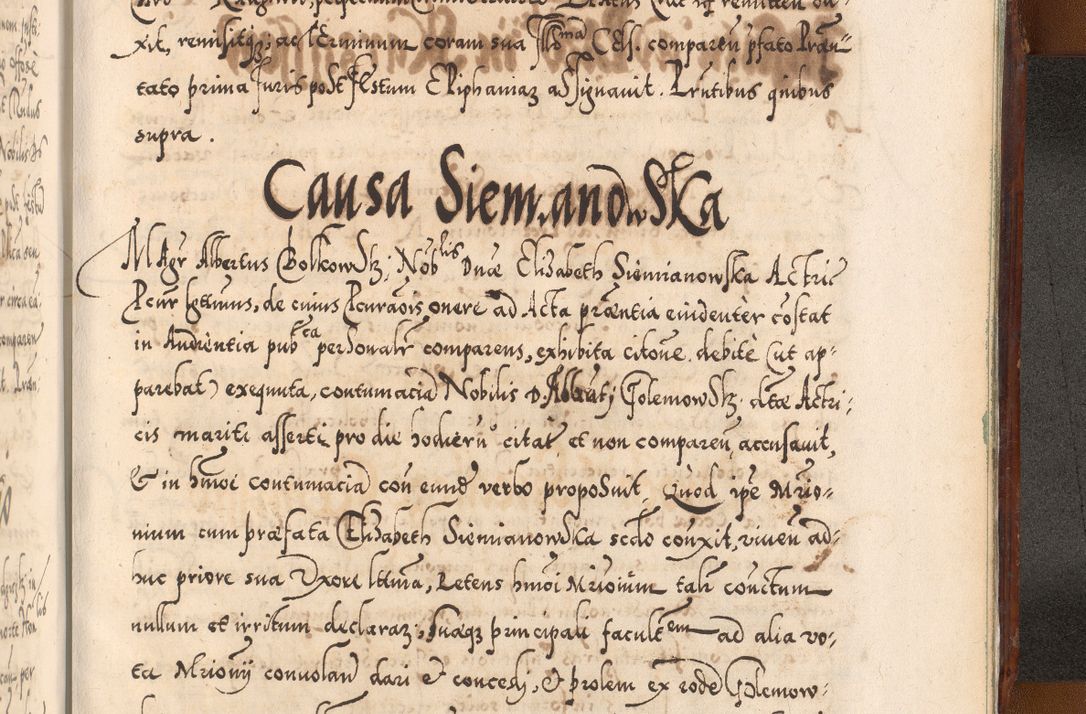 xit, remisitq; ac Terminum coram sua Illma Cels. compareñ pfato Prãn
tato prima Juris post Festum Epiphaniæ assignavit. Prñtibus quibus
supra.
Causa SiemianowSKa
MAgr Albertus Bolkowskj, Nobilis Dnæ Elisabeth Siemianowska Actric
Pcur lgttimus, de cuius Pcuraõis onere ad Acta præntia evidenter cõstat
in Audientia pubca personalr comparens, exhibita citõne debitè (ut ap-
parebat) exequuta, contumaciã Nobilis D. Alberti Golemowskj ctæ Actri-
cis mariti asserti pro die hodiernũ citat et non compareñ accusavit,
& in hmõi contumaciã coñ eund verbo proposuit, Quod ipe Mrio-
nium cum præfata Elisabeth Siemianowska scdo conxit, viveñ ad-
huc priore sua Vxore lttma, Petens hmõi Mrioniũm talr conctum
nullum et irritum declarari, suæq principali facultem ad alia vo-
ta Mrionij convolañ dari & concedi, & prolem ex eode Golemow-